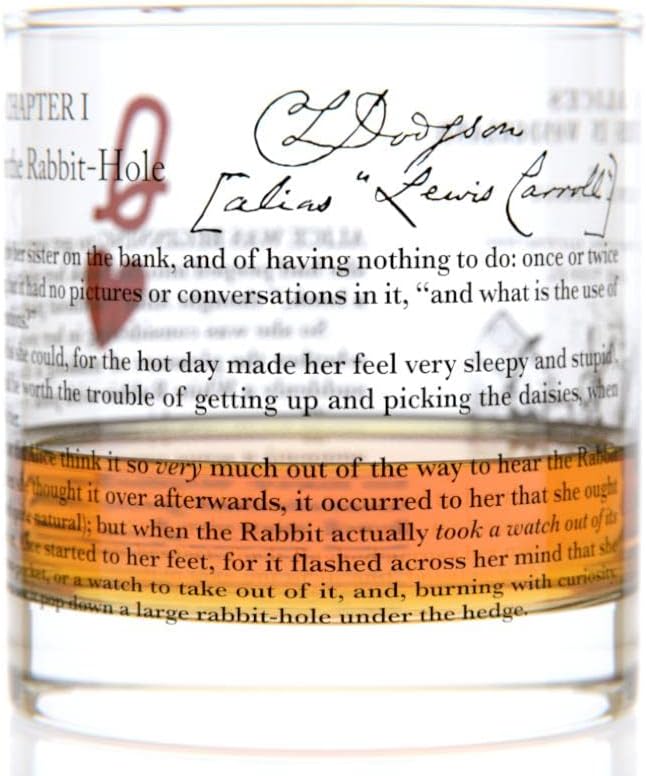 CHAPTER I
the Rabbit-Hole
CL Dodgson
[alias "Lewis Carroll"]
her sister on the bank, and of having nothing to do: once or twice
it had no pictures or conversations in it, “and what is the use of
she could, for the hot day made her feel very sleepy and stupid
worth the trouble of getting up and picking the daisies, when
Alice think it so very much out of the way to hear the Rabbit
thought it over afterwards, it occurred to her that she ought
natural); but when the Rabbit actually took a watch out of its
started to her feet, for it flashed across her mind that she
or a watch to take out of it, and, burning with curiosity,
pop down a large rabbit-hole under the hedge.
Q